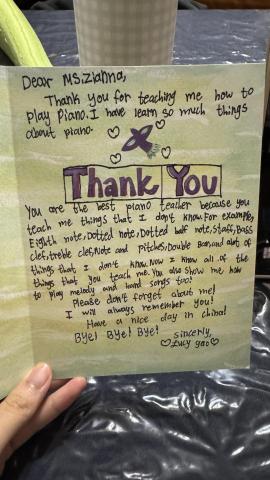 Dear Ms.zianna,
Thank you for teaching me how to
play Piano. I have learn so much things
about piano.
Thank You
You are the best piano teacher because you
teach me things that I don't know. For example,
Eighth note, Dotted note, Dotted half note, Staff, Bass
clef, treble clef, Note and pitches, Double Bar, and alot of
things that I don't know. Now I know all of the
things that you teach me. You also show me how
to play melody and hard songs too!
Please don't forget about me!
I will always remember you!
Have a nice day in China!
Bye! Bye! Bye!
Sincerly,
Lucy gao